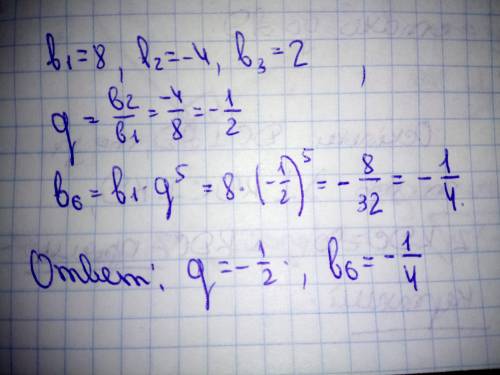 b₁=8, b₂=-4, b₃=2,
q = b₂/b₁ = -4/8 = -1/2
b₆ = b₁·q⁵ = 8·(-1/2)⁵ = -8/32 = -1/4.
Ответ: q = -1/2, b₆ = -1/4